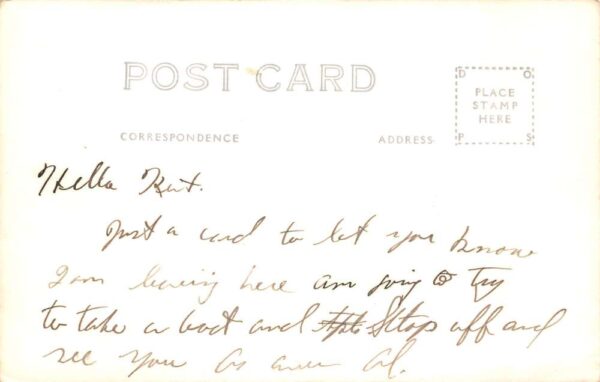 POST CARD
D O
PLACE
STAMP
HERE
P S
CORRESPONDENCE
ADDRESS
Hella Kit.
Just a card to let you know
I am leaving here am going to try
to take a boat and Stop off and
see you as